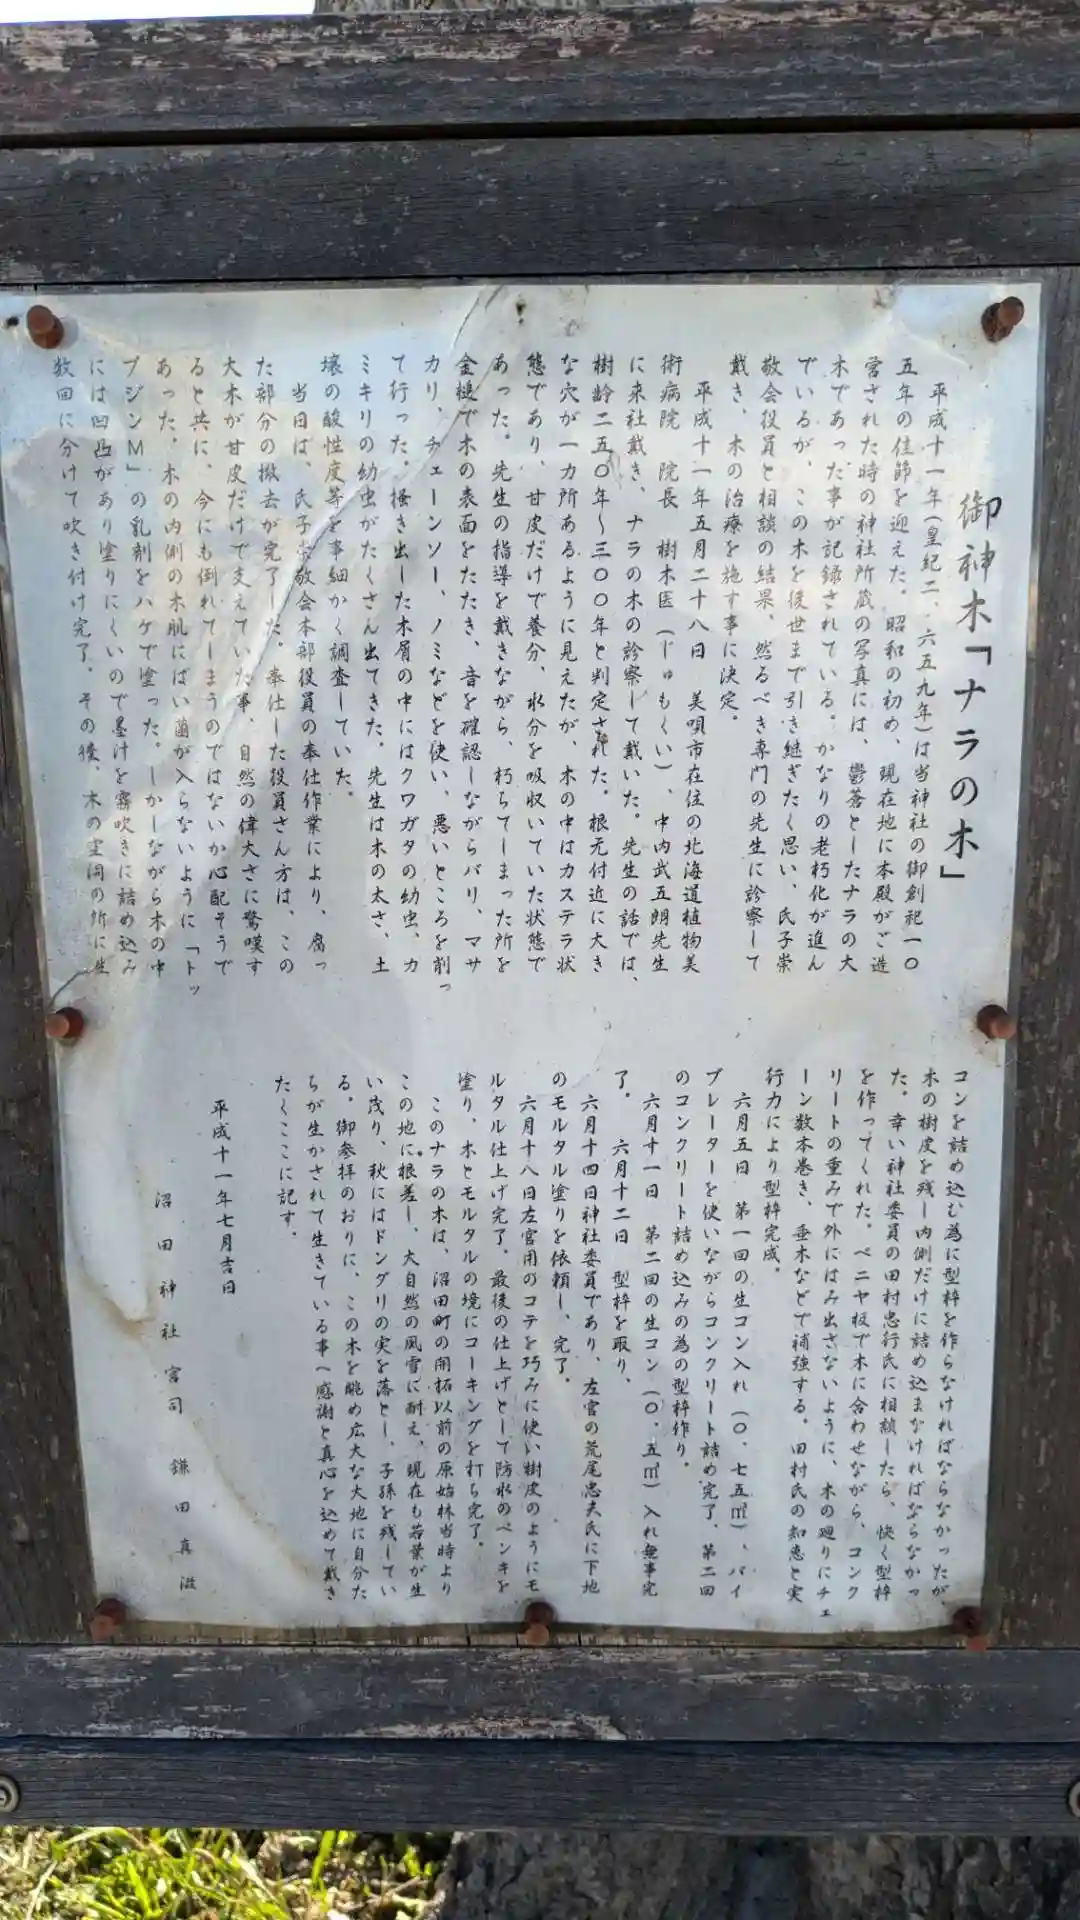 御神木「ナラの木」
平成十一年(皇紀二、六五九年)は当神社の御創祀一〇
五年の佳節を迎えた。昭和の初め、現在地に本殿がご造
営された時の神社所蔵の写真には、鬱蒼としたナラの大
木であった事が記録されている。かなりの老朽化が進ん
でいるが、この木を後世まで引き継ぎたく思い、氏子崇
敬会役員と相談の結果、然るべき専門の先生に診察して
戴き、木の治療を施す事に決定。
平成十一年五月二十八日 美唄市在住の北海道植物美
術病院 院長 樹木医(じゅもくい)、中内武五朗先生
に来社戴き、ナラの木の診察して戴いた。先生の話では、
樹齢二五〇年〜三〇〇年と判定された。根元付近に大き
な穴が一カ所あるように見えたが、木の中はカステラ状
態であり、甘皮だけで養分、水分を吸収いていた状態で
あった。先生の指導を戴きながら、朽ちてしまった所を
金槌で木の表面をたたき、音を確認しながらバリ、マサ
カリ、チェーンソー、ノミなどを使い、悪いところを削っ
て行った。掻き出した木屑の中にはクワガタの幼虫、カ
ミキリの幼虫がたくさん出てきた。先生は木の太さ、土
壌の酸性度等を事細かく調査していた。
当日は、氏子崇敬会本部役員の奉仕作業により、腐っ
た部分の撤去が完了した。奉仕した役員さん方は、この
大木が甘皮だけで支えていた事、自然の偉大さに驚嘆す
ると共に、今にも倒れてしまうのではないか心配そうで
あった。木の内側の木肌にはばい菌が入らないように「トッ
プジンM」の乳剤をハケで塗った。しかしながら木の中
には凹凸があり塗りにくいので墨汁を霧吹きに詰め込み
数回に分けて吹き付け完了。その後、木の空洞の所に生
コンを詰め込む為に型枠を作らなければならなかったが、
木の樹皮を残し内側だけに詰め込まなければならなかっ
た。幸い神社委員の田村忠行氏に相頼したら、快く型枠
を作ってくれた。ベニヤ板で木に合わせながら、コンク
リートの重みで外にはみ出さないように、木の廻りにチェ
ーン数本巻き、垂木などで補強する。田村氏の知恵と実
行力により型枠完成。
六月五日 第一回の生コン入れ(〇、七五㎥)、バイ
ブレーターを使いながらコンクリート詰め完了、第二回
のコンクリート詰め込みの為の型枠作り。
六月十一日 第二回の生コン(〇、五㎥)入れ無事完
了。 六月十二日 型枠を取り、
六月十四日神社委員であり、左官の荒尾忠夫氏に下地
のモルタル塗りを依頼し、完了。
六月十八日左官用のコテを巧みに使い樹皮のようにモ
ルタル仕上げ完了。最後の仕上げとして防水のペンキを
塗り、木とモルタルの境にコーキングを打ち完了。
このナラの木は、沼田町の開拓以前の原始林当時より
この地に根差し、大自然の風雪に耐え、現在も若葉が生
い茂り、秋にはドングリの実を落とし、子孫を残してい
る。御参拝のおりに、この木を眺め広大な大地に自分た
ちが生かされて生きている事へ感謝と真心を込めて戴き
たくここに記す。
平成十一年七月吉日
沼田神社宮司 鎌田真滋